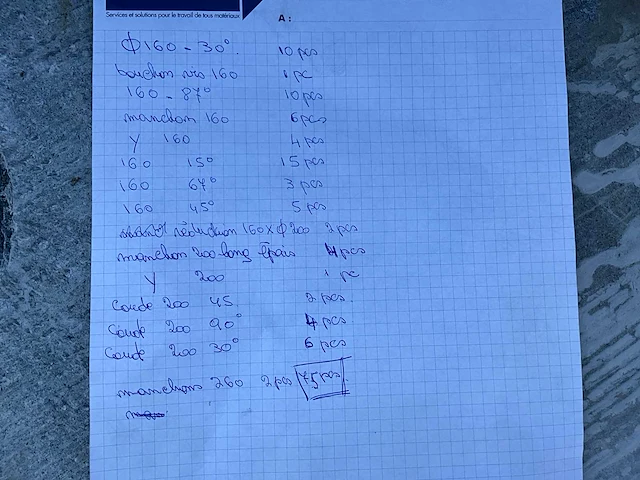 Services et solutions pour le travail de tous matériaux
A :
φ 160 - 30° 10 pcs
bouchon vis 160 1 pc
160 - 87° 10 pcs
manchon 160 6 pcs
Y 160 4 pcs
160 15° 15 pcs
160 67° 3 pcs
160 45° 5 pcs
réduction 160 x φ 200 2 pcs
manchon 200 long épais 4 pcs
Y 200 1 pc
Coude 200 45 2 pcs.
Coude 200 90° 4 pcs
Coude 200 30° 6 pcs
manchons 260 2 pcs 75 pcs